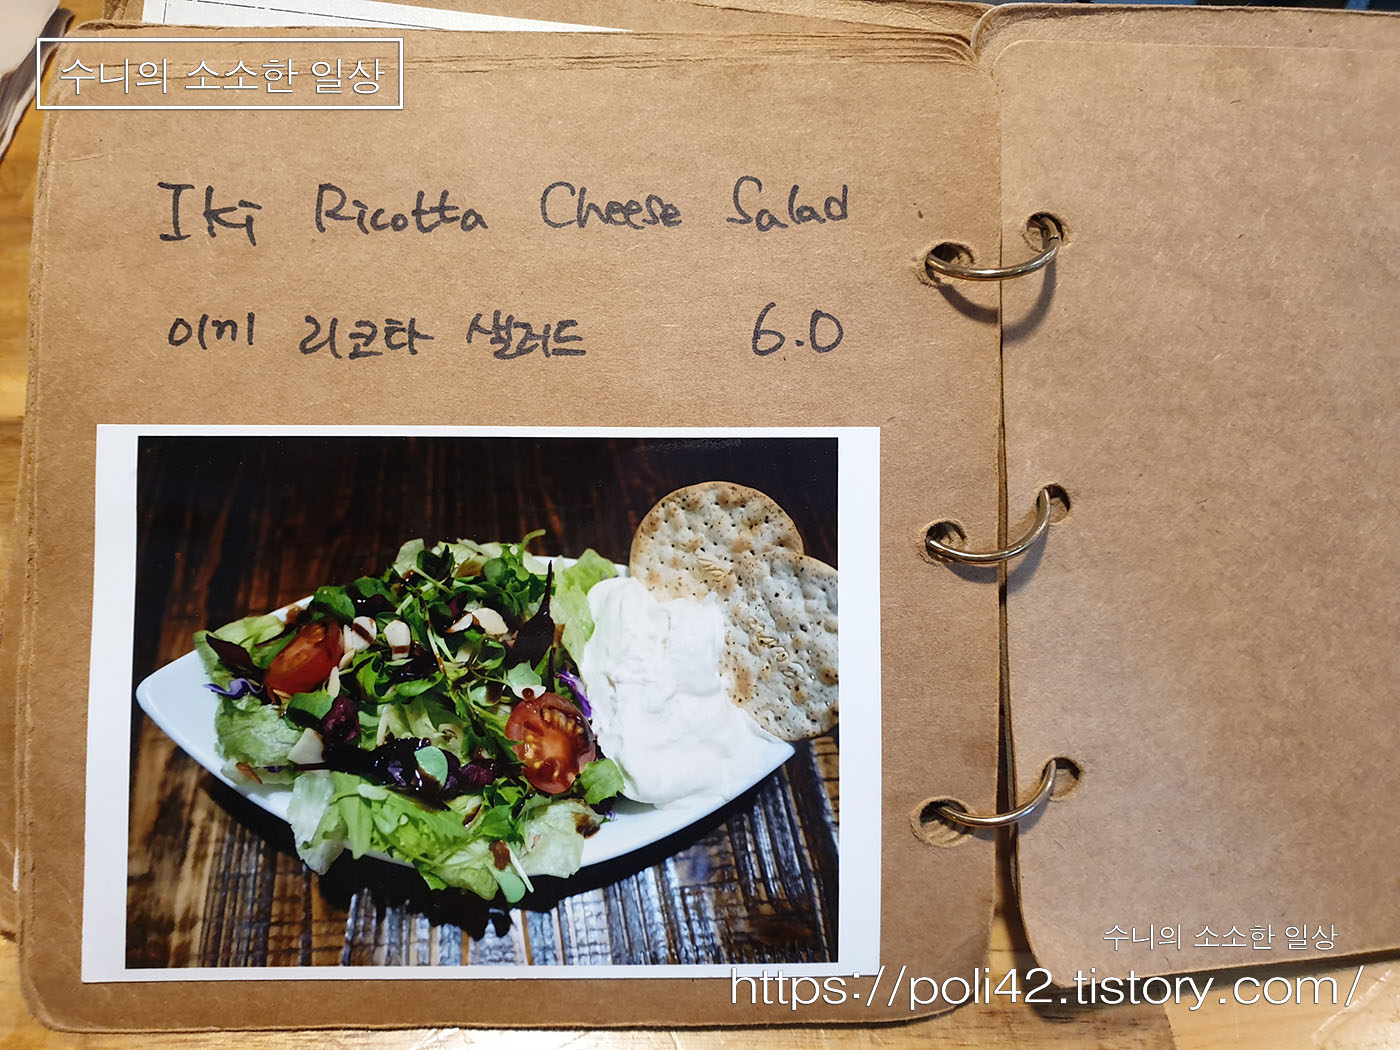 수니의 소소한 일상
Iki Ricotta Cheese Salad
이끼 리코타 샐러드 6.0
수니의 소소한 일상
https://poli42.tistory.com/